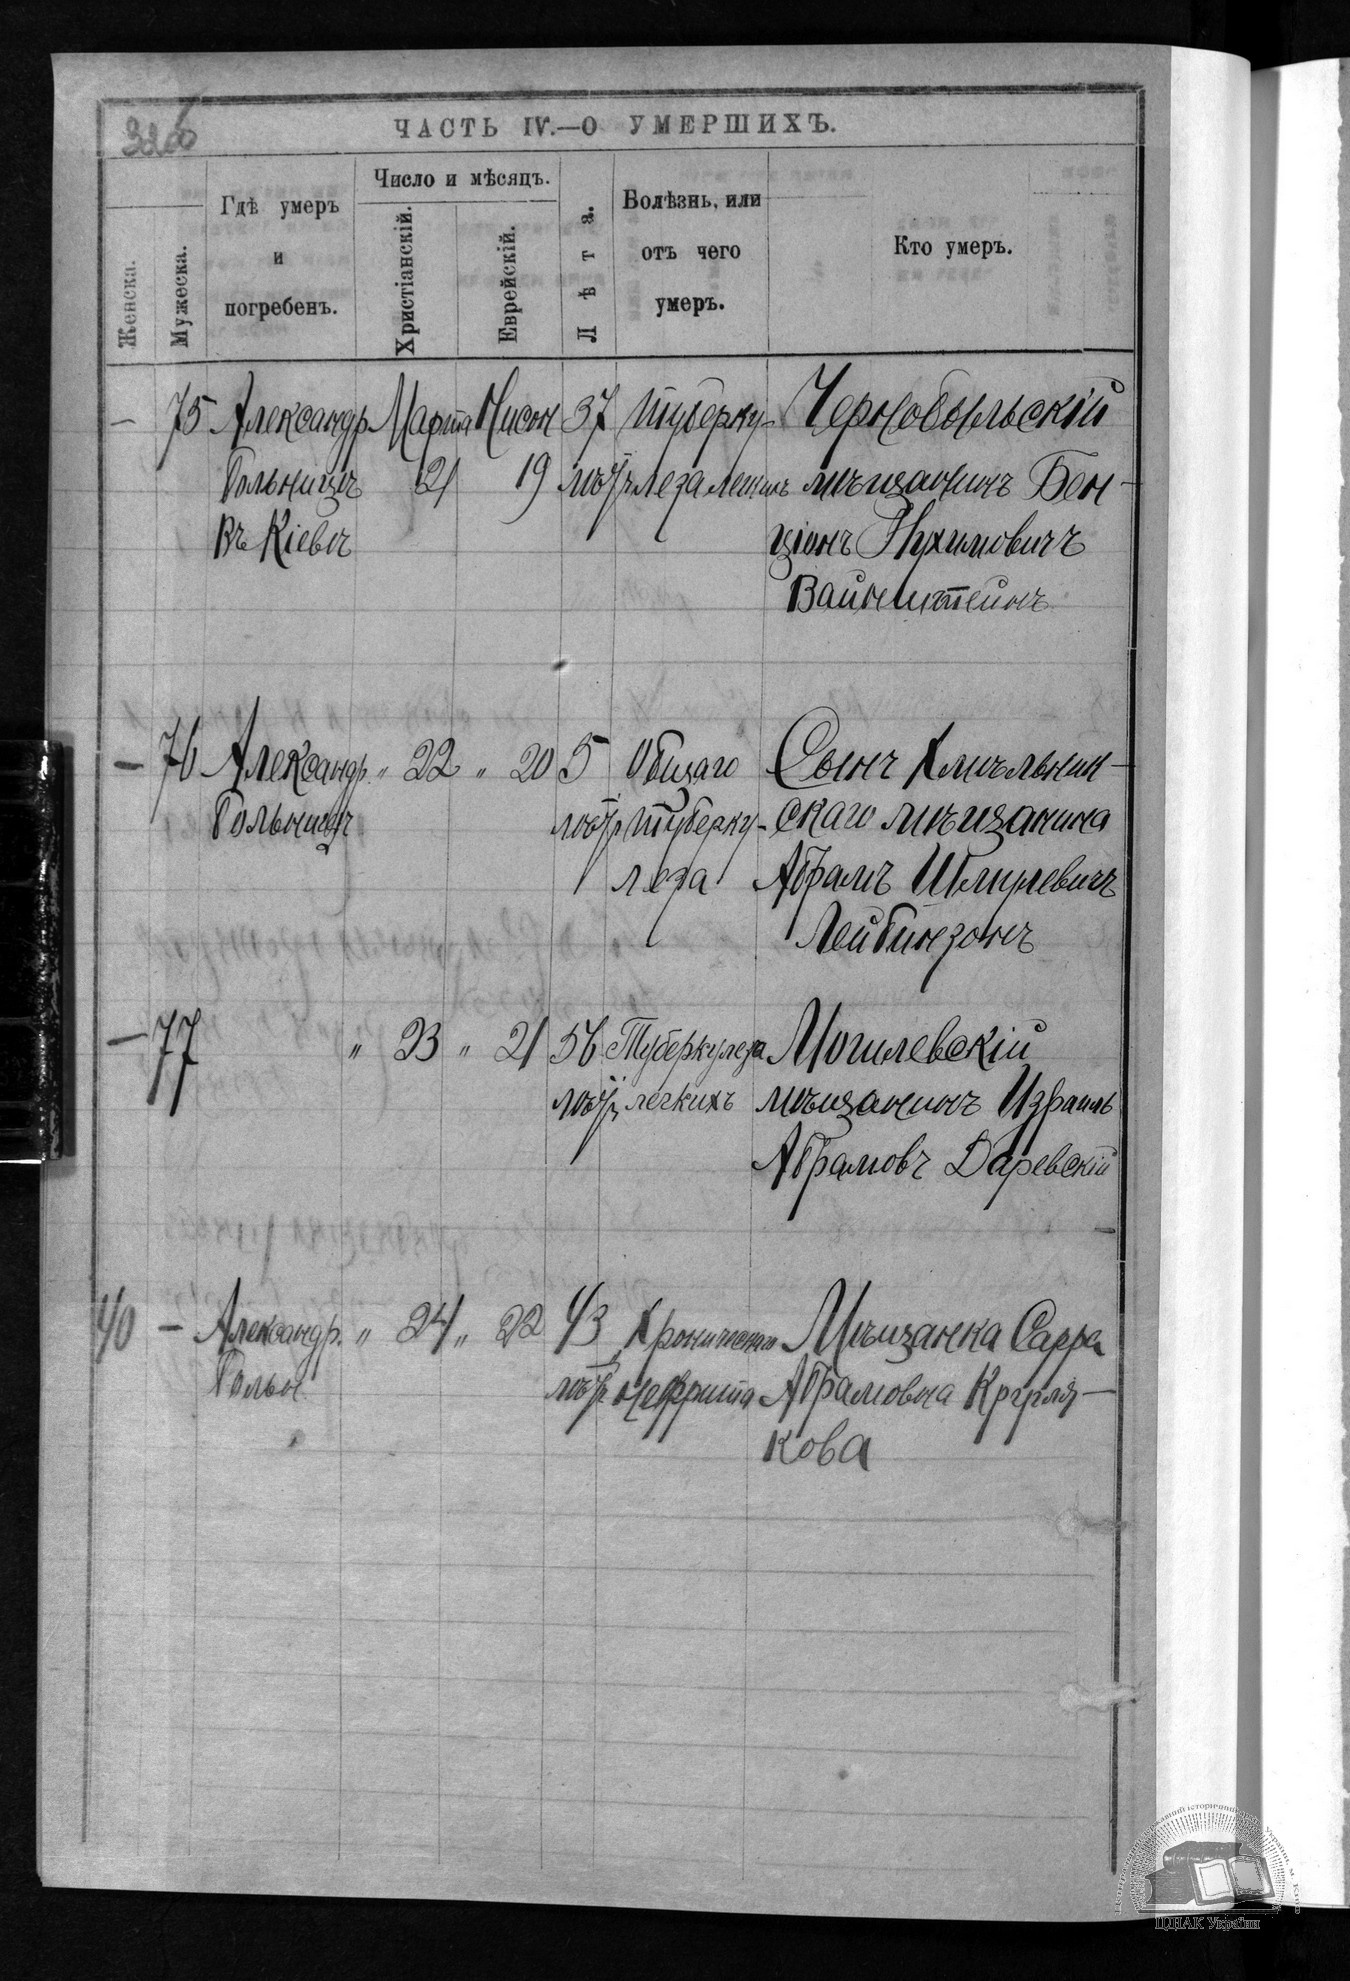 ЧАСТЬ IV.—О УМЕРШИХЪ.
Женска.
Мужеска.
Гдѣ умеръ
и
погребенъ.
Число и мѣсяцъ.
Христіанскій.
Еврейскій.
Лѣта.
Болѣзнь, или
отъ чего
умеръ.
Кто умеръ.
— 75 Александр Марта Нисон 37 туберку- Чернобыльскій
больницѣ 21 19 лѣтъ леза легкихъ мѣщанинъ Бен-
въ Кіевѣ ціонъ Нухимовичъ
Вайнштейнъ
— 76 Александр. " 22 " 20 5 Общаго Сынъ Хмѣльник-
больницѣ лѣтъ туберку- скаго мѣщанина
леза Абрамъ Шмулевичъ
Лейбинзонъ
— 77 " 23 " 21 56 Туберкулеза Могилевскій
лѣтъ легкихъ мѣщанинъ Израиль
Абрамовъ Даревскій
40 — Александр. " 24 " 22 43 Хроническаго Мѣщанка Сарра
больн лѣтъ нефрита Абрамовна Кругля-
кова
ЦДІАК України